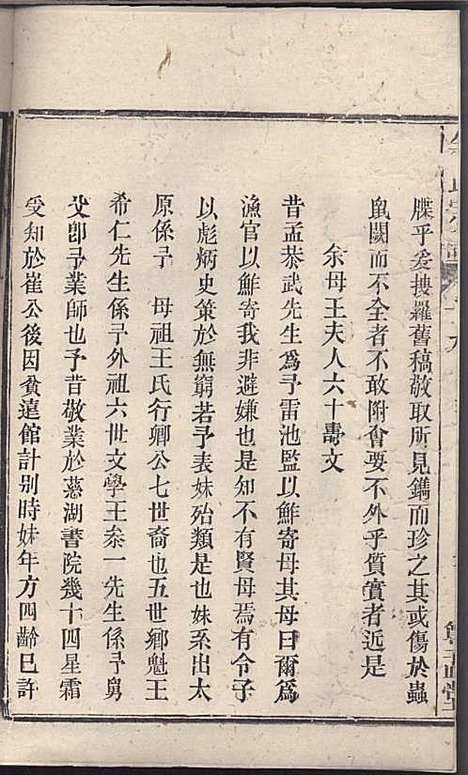 牒乎爰搜羅舊稿敬取所見鐫而珍之其或傷於蟲
鼠闕而不全者不敢附會要不外乎質實者近是
余母王夫人六十壽文
昔孟恭武先生爲予雷池監以鮮寄母其母曰爾爲
漁官以鮮寄我非避嫌也是知不有賢母焉有令子
以彪炳史策於無窮若予表妹殆類是也妹系出太
原係予 母祖王氏行卿公七世裔也五世鄉魁王
希仁先生係予外祖六世文學王叅一先生係予舅
父卽予業師也予昔敬業於慈湖書院幾十四星霜
受知於崔公後因貧遠館計别時妹年方四齡已許